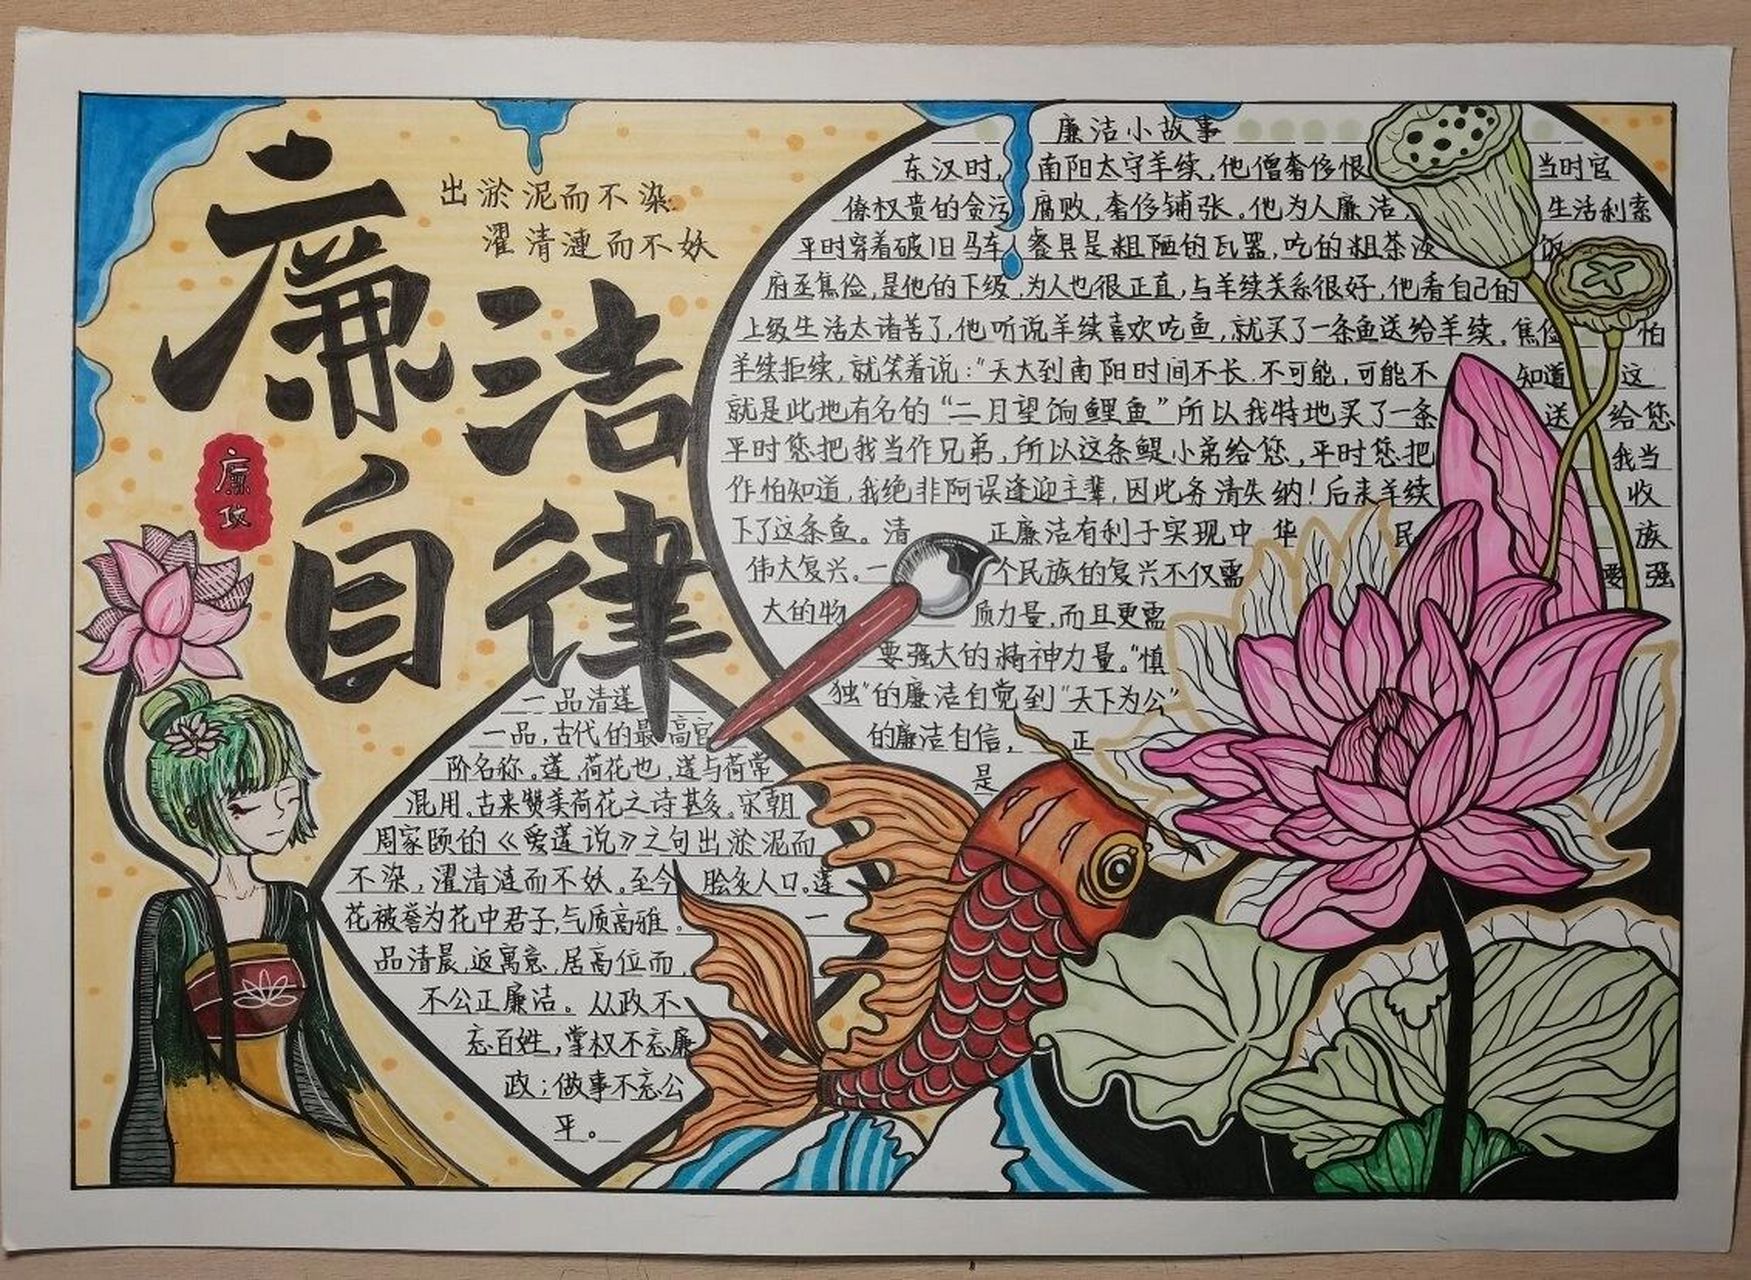 廉洁
自律
出淤泥而不染
濯清涟而不妖
廉政
廉洁小故事
东汉时,南阳太守羊续,他憎奢侈恨 当时官
僚权贵的贪污腐败,奢侈铺张。他为人廉洁, 生活利索
平时穿着破旧马车,餐具是粗陋的瓦器,吃的粗茶淡 饭
府丞焦俭,是他的下级,为人也很正直,与羊续关系很好,他看自己的
上级生活太诸苦了,他听说羊续喜欢吃鱼,就买了一条鱼送给羊续。焦俭 怕
羊续拒续,就笑着说:“天大到南阳时间不长.不可能,可能不 知道 这
就是此地有名的“二月望饷鲤鱼”所以我特地买了一条 送 给您
平时您把我当作兄弟,所以这条鳀小弟给您,平时您把 我当
作怕知道,我绝非阿误逢迎主辈,因此务清失纳!后来羊续 收
下了这条鱼。清 正廉洁有利于实现中 华 民 族
伟大复兴。一 个民族的复兴不仅需 要 强
大的物 质力量,而且更需
要强大的精神力量。“慎
独”的廉洁自觉到“天下为公”
的廉洁自信, 正
是
一品清莲
一品,古代的最高官
阶名称。莲,荷花也,莲与荷常
混用。古来赞美荷花之诗甚多。宋朝
周家颐的《爱莲说》之句出淤泥而
不染,濯清涟而不妖。至今 脍炙人口。莲
花被誉为花中君子,气质高雅。 一
品清晨,返寓意,居高位而,
不公正廉洁。从政不
忘百姓,掌权不忘廉
政;做事不忘公
平。